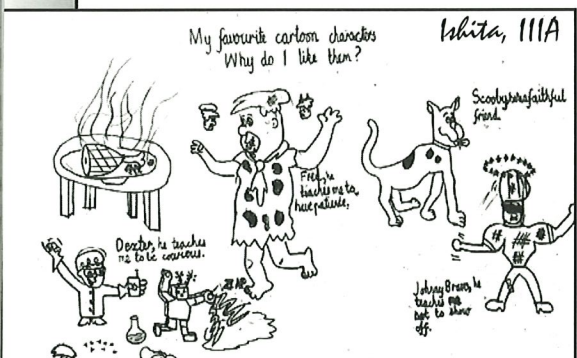 Ishita, IIIA
My favourite cartoon characters
Why do I like them?
Scooby is a faithful
friend.
Fred, he
teaches me to
have patience.
Dexter, he teaches
me to be courious.
ZZAP
Johnny Bravo, he
teaches me
not to show
off.